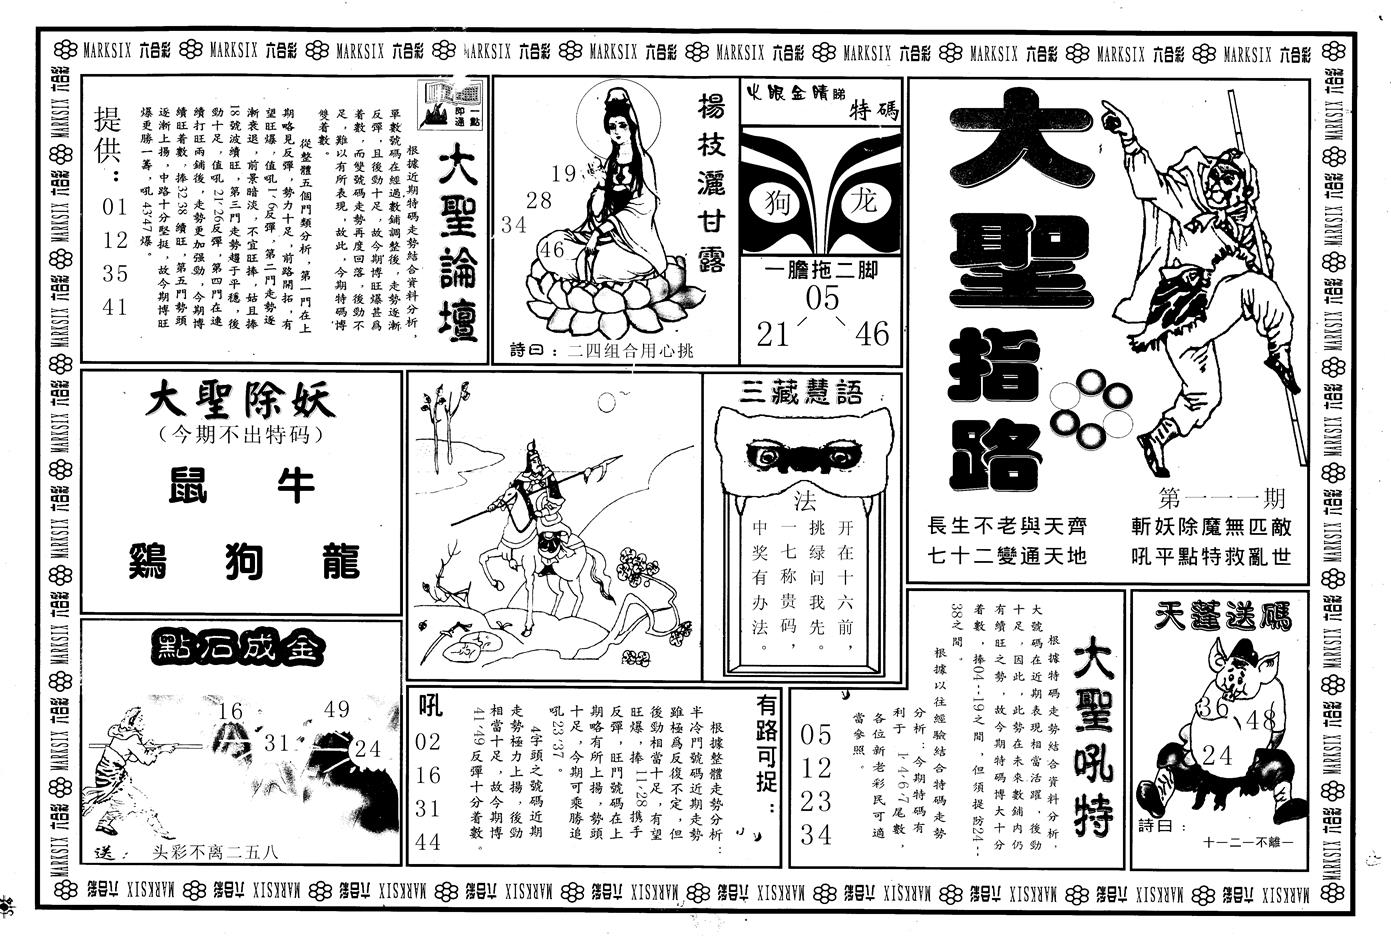 MARKSIX 六合彩 MARKSIX 六合彩 MARKSIX 六合彩 MARKSIX 六合彩 MARKSIX 六合彩 MARKSIX 六合彩 MARKSIX 六合彩 MARKSIX 六合彩 MARKSIX 六合彩 MARKSIX 六合彩
一點即通
大聖論壇
根據近期特碼走勢結合資料分析，
單數號碼在經過數鋪調整後，走勢逐漸
反彈，且後勁十足，故今期博旺爆甚爲
着數，而雙號碼走勢再度回落，後勁不
足，難以有所表現，故此，今期特碼博
雙着數。
從整體五個門類分析，第一門在上
期略見反彈，勢力十足，前路開拓，有
望旺爆，值吼1、6反彈，第二門走勢逐
漸衰退，前景暗淡，不宜旺捧，姑且捧
18號波續旺，第三門走勢趨于平穩，後
勁十足，值吼21、26反彈，第四門在連
續打旺兩鋪後，走勢更加强勁，今期博
續旺着數，捧32、38續旺，第五門勢頭
逐漸上揚，中路十分堅挺，故今期博旺
爆更勝一籌，吼43、47爆。
提供：
01
12
35
41
楊枝灑甘露
19
28
34
46
詩曰：二四组合用心挑
火眼金睛睇
特碼
狗 龙
一膽拖二脚
05
21 46
大聖指路
第一一一期
長生不老與天齊 斬妖除魔無匹敵
七十二變通天地 吼平點特救亂世
大聖除妖
（今期不出特码）
鼠 牛
鷄 狗 龍
三藏慧語
法
开在十六前，
挑绿问我先。
一七称贵码，
中奖有办法。
點石成金
16
49
31
24
送： 头彩不离二五八
吼
02
16
31
44
有路可捉：
根據整體走勢分析：
半冷門號碼近期走勢
雖極爲反復不定，但
後勁相當十足，有望
旺爆，捧11、28携手
反彈，旺門號碼在上
期略有所上揚，勢頭
十足，今期可乘勝追
吼23、37。
4字頭之號碼近期
走勢極力上揚，後勁
相當十足，故今期博
41、49反彈十分着數。
大聖吼特
根據特碼走勢結合資料分析，
大號碼在近期表現相當活躍，後勁
十足，因此，此勢在未來數鋪内仍
有續旺之勢，故今期特碼博大十分
着數，捧04--19之間，但須提防24--
38之間。
根據以往經驗結合特碼走勢
分析：今期特碼有
利于1、4、6、7尾數，
各位新老彩民可適
當參照。
05
12
23
34
天蓬送碼
36
48
24
詩曰：
十一二一不離一
MARKSIX 六合彩 MARKSIX 六合彩 MARKSIX 六合彩 MARKSIX 六合彩 MARKSIX 六合彩 MARKSIX 六合彩 MARKSIX 六合彩 MARKSIX 六合彩 MARKSIX 六合彩 MARKSIX 六合彩